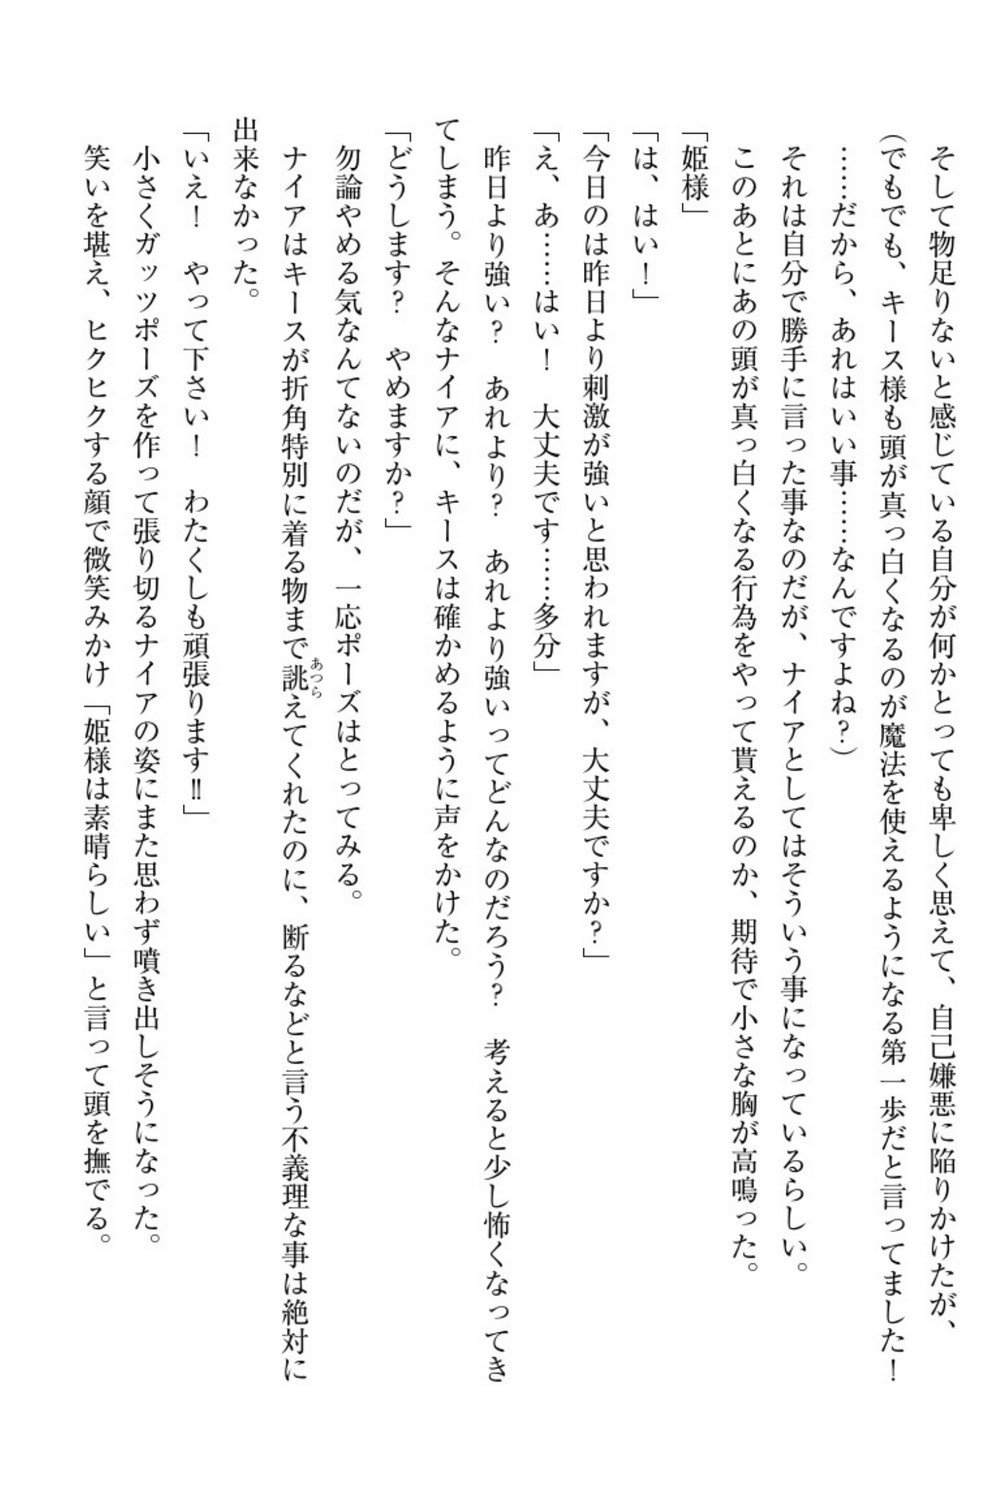 そして物足りないと感じている自分が何かとっても卑しく思えて、自己嫌悪に陥りかけたが、
（でもでも、キース様も頭が真っ白くなるのが魔法を使えるようになる第一歩だと言ってました！
……だから、あれはいい事……なんですよね？）
それは自分で勝手に言った事なのだが、ナイアとしてはそういう事になっているらしい。
このあとにあの頭が真っ白くなる行為をやって貰えるのか、期待で小さな胸が高鳴った。
「姫様」
「は、はい！」
「今日のは昨日より刺激が強いと思われますが、大丈夫ですか？」
「え、あ……はい！　大丈夫です……多分」
昨日より強い？　あれより？　あれより強いってどんなのだろう？　考えると少し怖くなってき
てしまう。そんなナイアに、キースは確かめるように声をかけた。
「どうします？　やめますか？」
勿論やめる気なんてないのだが、一応ポーズはとってみる。
ナイアはキースが折角特別に着る物まで誂えてくれたのに、断るなどと言う不義理な事は絶対に
あつら
出来なかった。
「いえ！　やって下さい！　わたくしも頑張ります‼」
小さくガッツポーズを作って張り切るナイアの姿にまた思わず噴き出しそうになった。
笑いを堪え、ヒクヒクする顔で微笑みかけ「姫様は素晴らしい」と言って頭を撫でる。